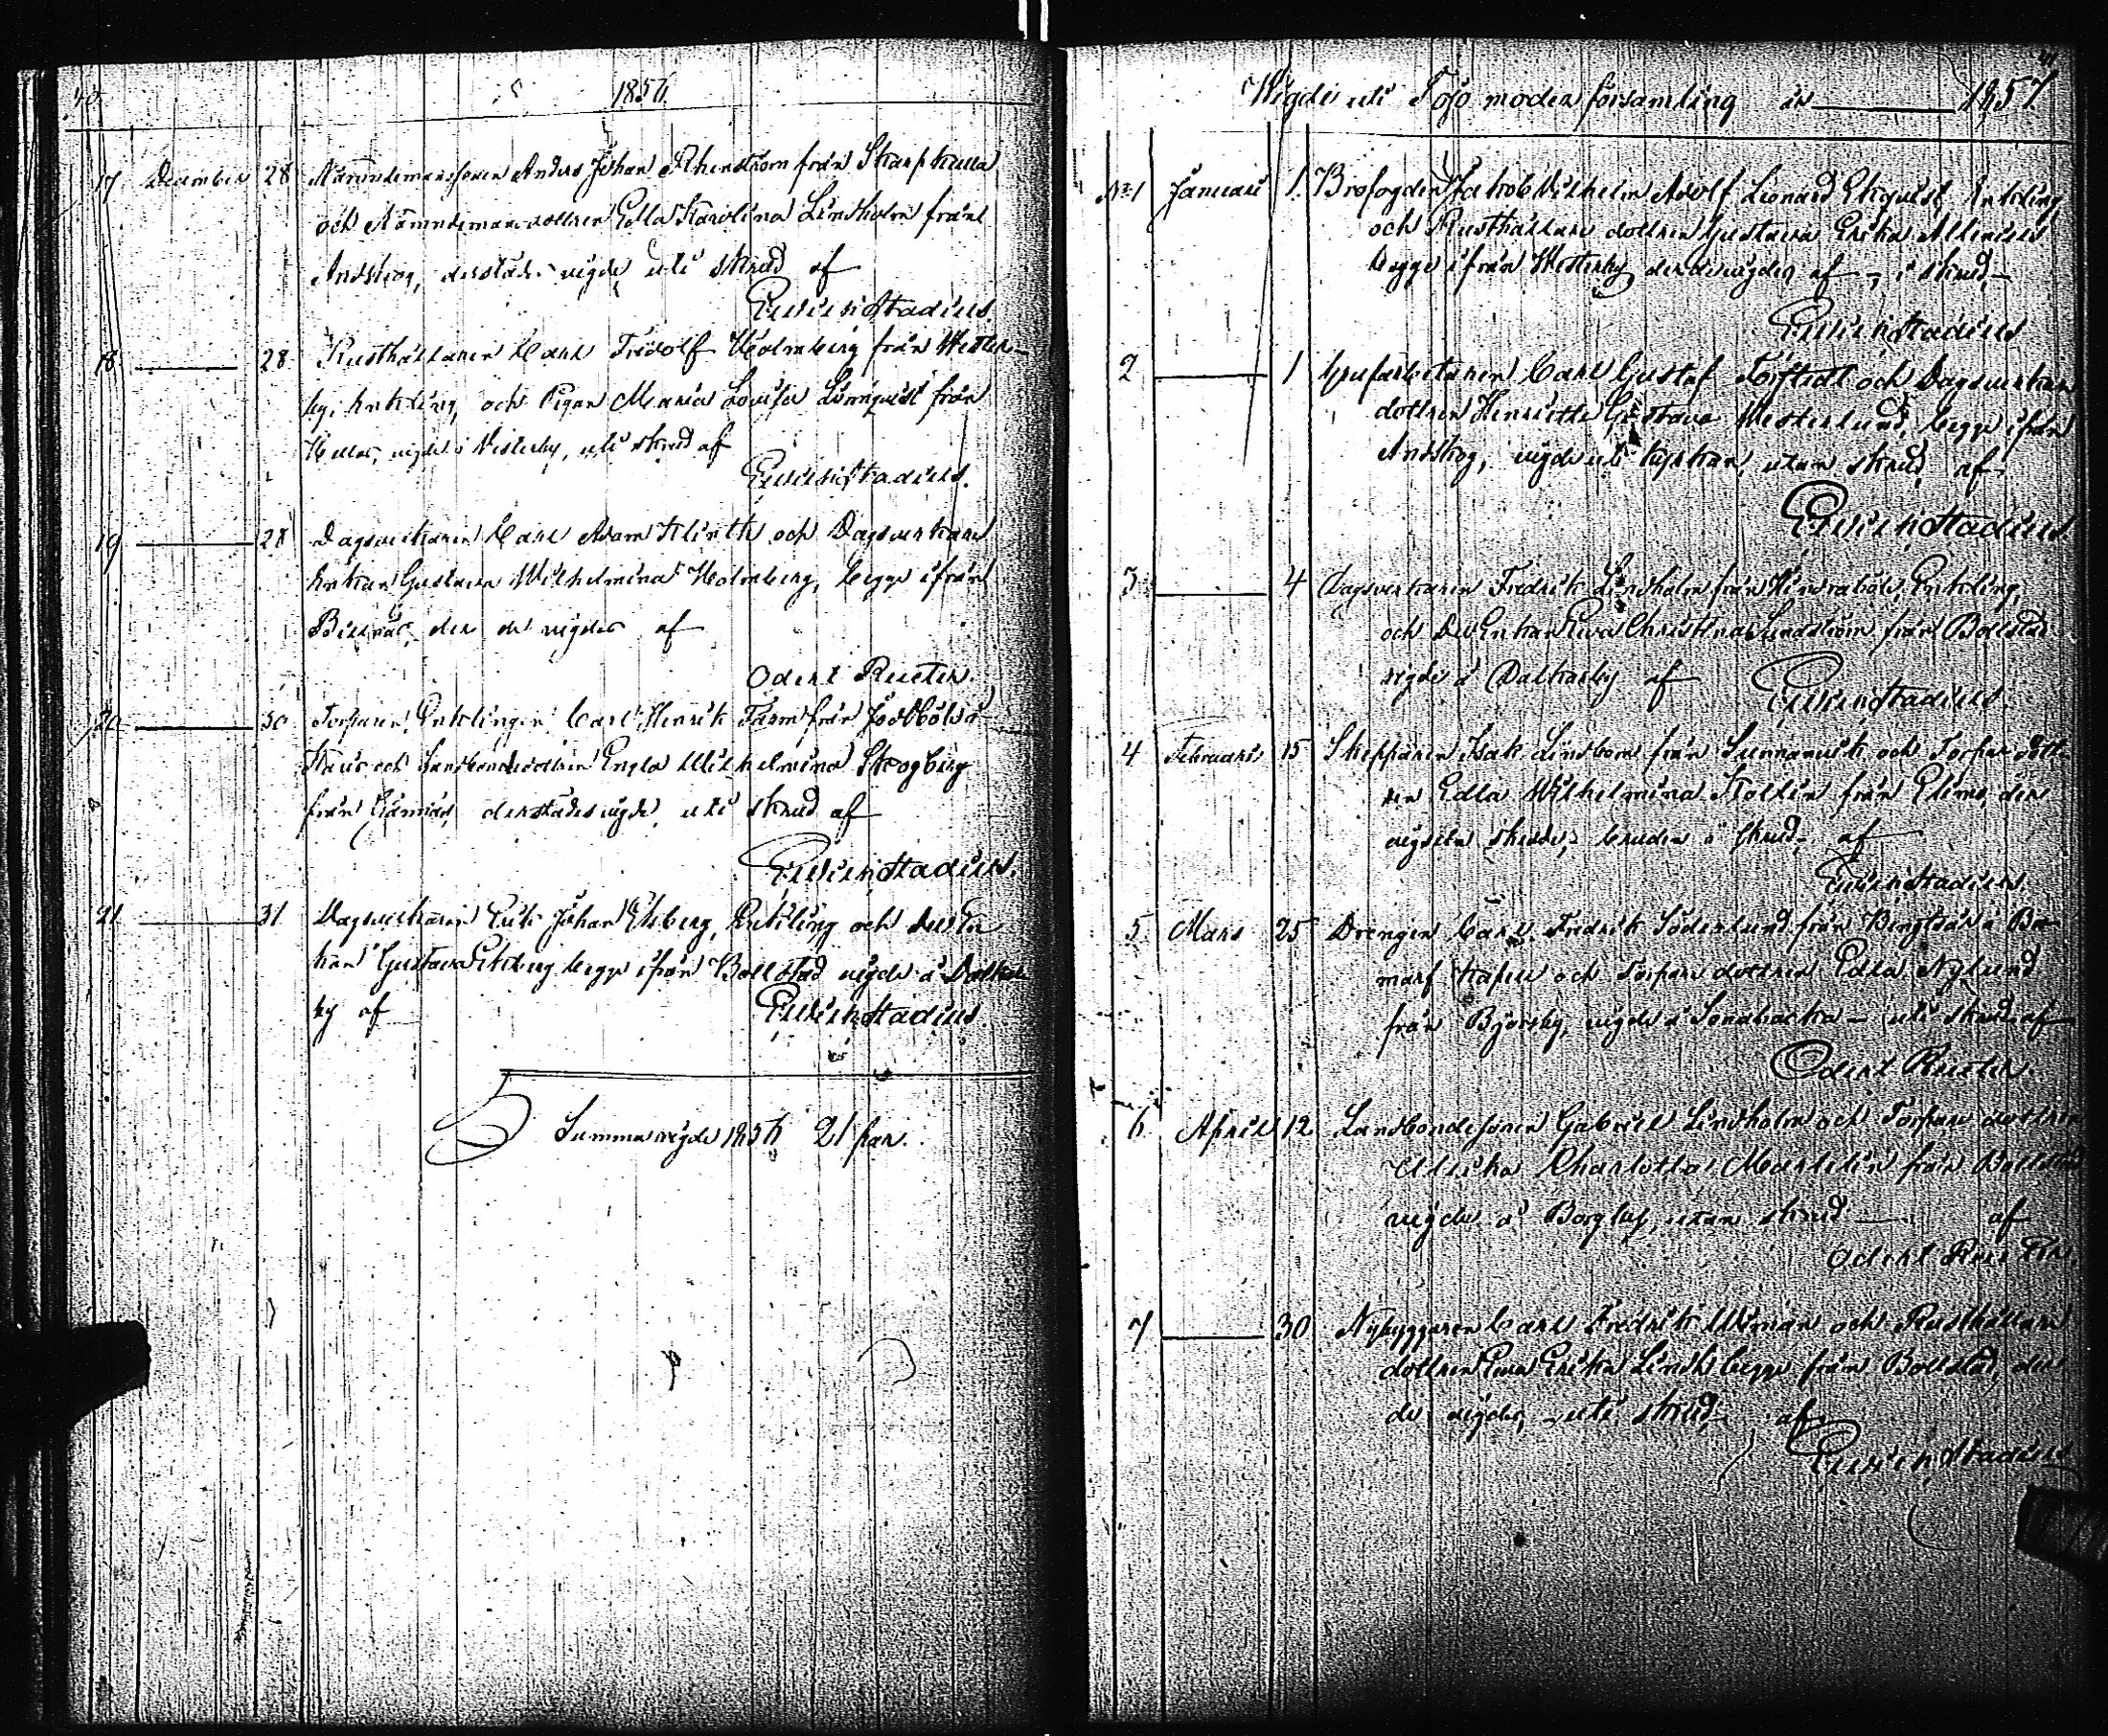 40.
1856.
17 December 28 Nämndemanssonen Anders Johan Rhenström från Skarpkulla
och Nämndemans dottren Edla Karolina Lindholm från
Andskog, derstädes vigde, uti skrud af
Edvin Stadius.
18 28 Rusthållaren Carl Fridolf Holmberg från Wester-
by, Enkling, och Pigan Maria Lovisa Lönnqvist från
vigde i Vesterby, uti skrud af
Edvin Stadius.
19 28 Dagsverkaren Carl Adam Klinth och Dagsverkare
Enkan Gustava Wilhelmina Holmberg, begge ifrån
Billnäs, der de vigdes af
Odert Reuter.
20 30 Torparen, Enklingen Carl Henrik Färm från
och Landbondedottren Engla Wilhelmina Skogberg
från derstädes vigde, uti skrud af
Edvin Stadius.
21 31 Dagsverkaren Erik Johan Ekberg, Enkling och Dito En
kan Gustava Ekberg begge ifrån Bollstad vigde å Dalkar
by af Edvin Stadius
Summa vigde 1856 21 par.
41
Wigde uti Pojo moder församling år 1857.
No 1 Januari 1. Brofogden Jakob Vilhelm Adolf Leonard Ekqvist, Enkling,
och Rusthållare dottren Gustava Erika Allenius
begge ifrån Westerby der de vigdes af – i skrud –
Edvin Stadius
2 1 Grufarbetaren Carl Gustaf och Dagsverkare
dottren Henrietta Gustava Westerlund, begge ifrån
Andskog, vigde uti kyrkan, utan skrud, af
Edvin Stadius
3 4 Dagsverkaren Fredrik Lindholm från Hindraböle, Enkling,
och Dito Enkan Eva Christina Lundström från Bollstad
vigde å Dalkarby af Edvin Stadius.
4 Februari 15 Skepparen Isak Lindbom från Sunnanvik och Torpar dott-
ren Edla Wilhelmina från Elimo, der
vigseln skedde, bruden i skrud, af
Edvin Stadius.
5 Mars 25 Drengen Carl Fredrik Söderlund från Bengtsår i Bro-
marf kapell och Torpare dottren Edla Nylund
från Björsby, vigde å Sonabacka – uti skrud af
Odert Reuter.
6 April 12 Landbondesonen Gabriel Lindholm och Torpare dottren
Ulrika Charlotta från Bollstad
vigde å Borgby, utan skrud af
Odert Reuter.
7 30 Nybyggaren Carl Fredrik Wiman och Rusthållare
dottren Eva Erika Lindh begge från Bollstad, der
de vigdes, uti skrud, af
Edvin Stadius